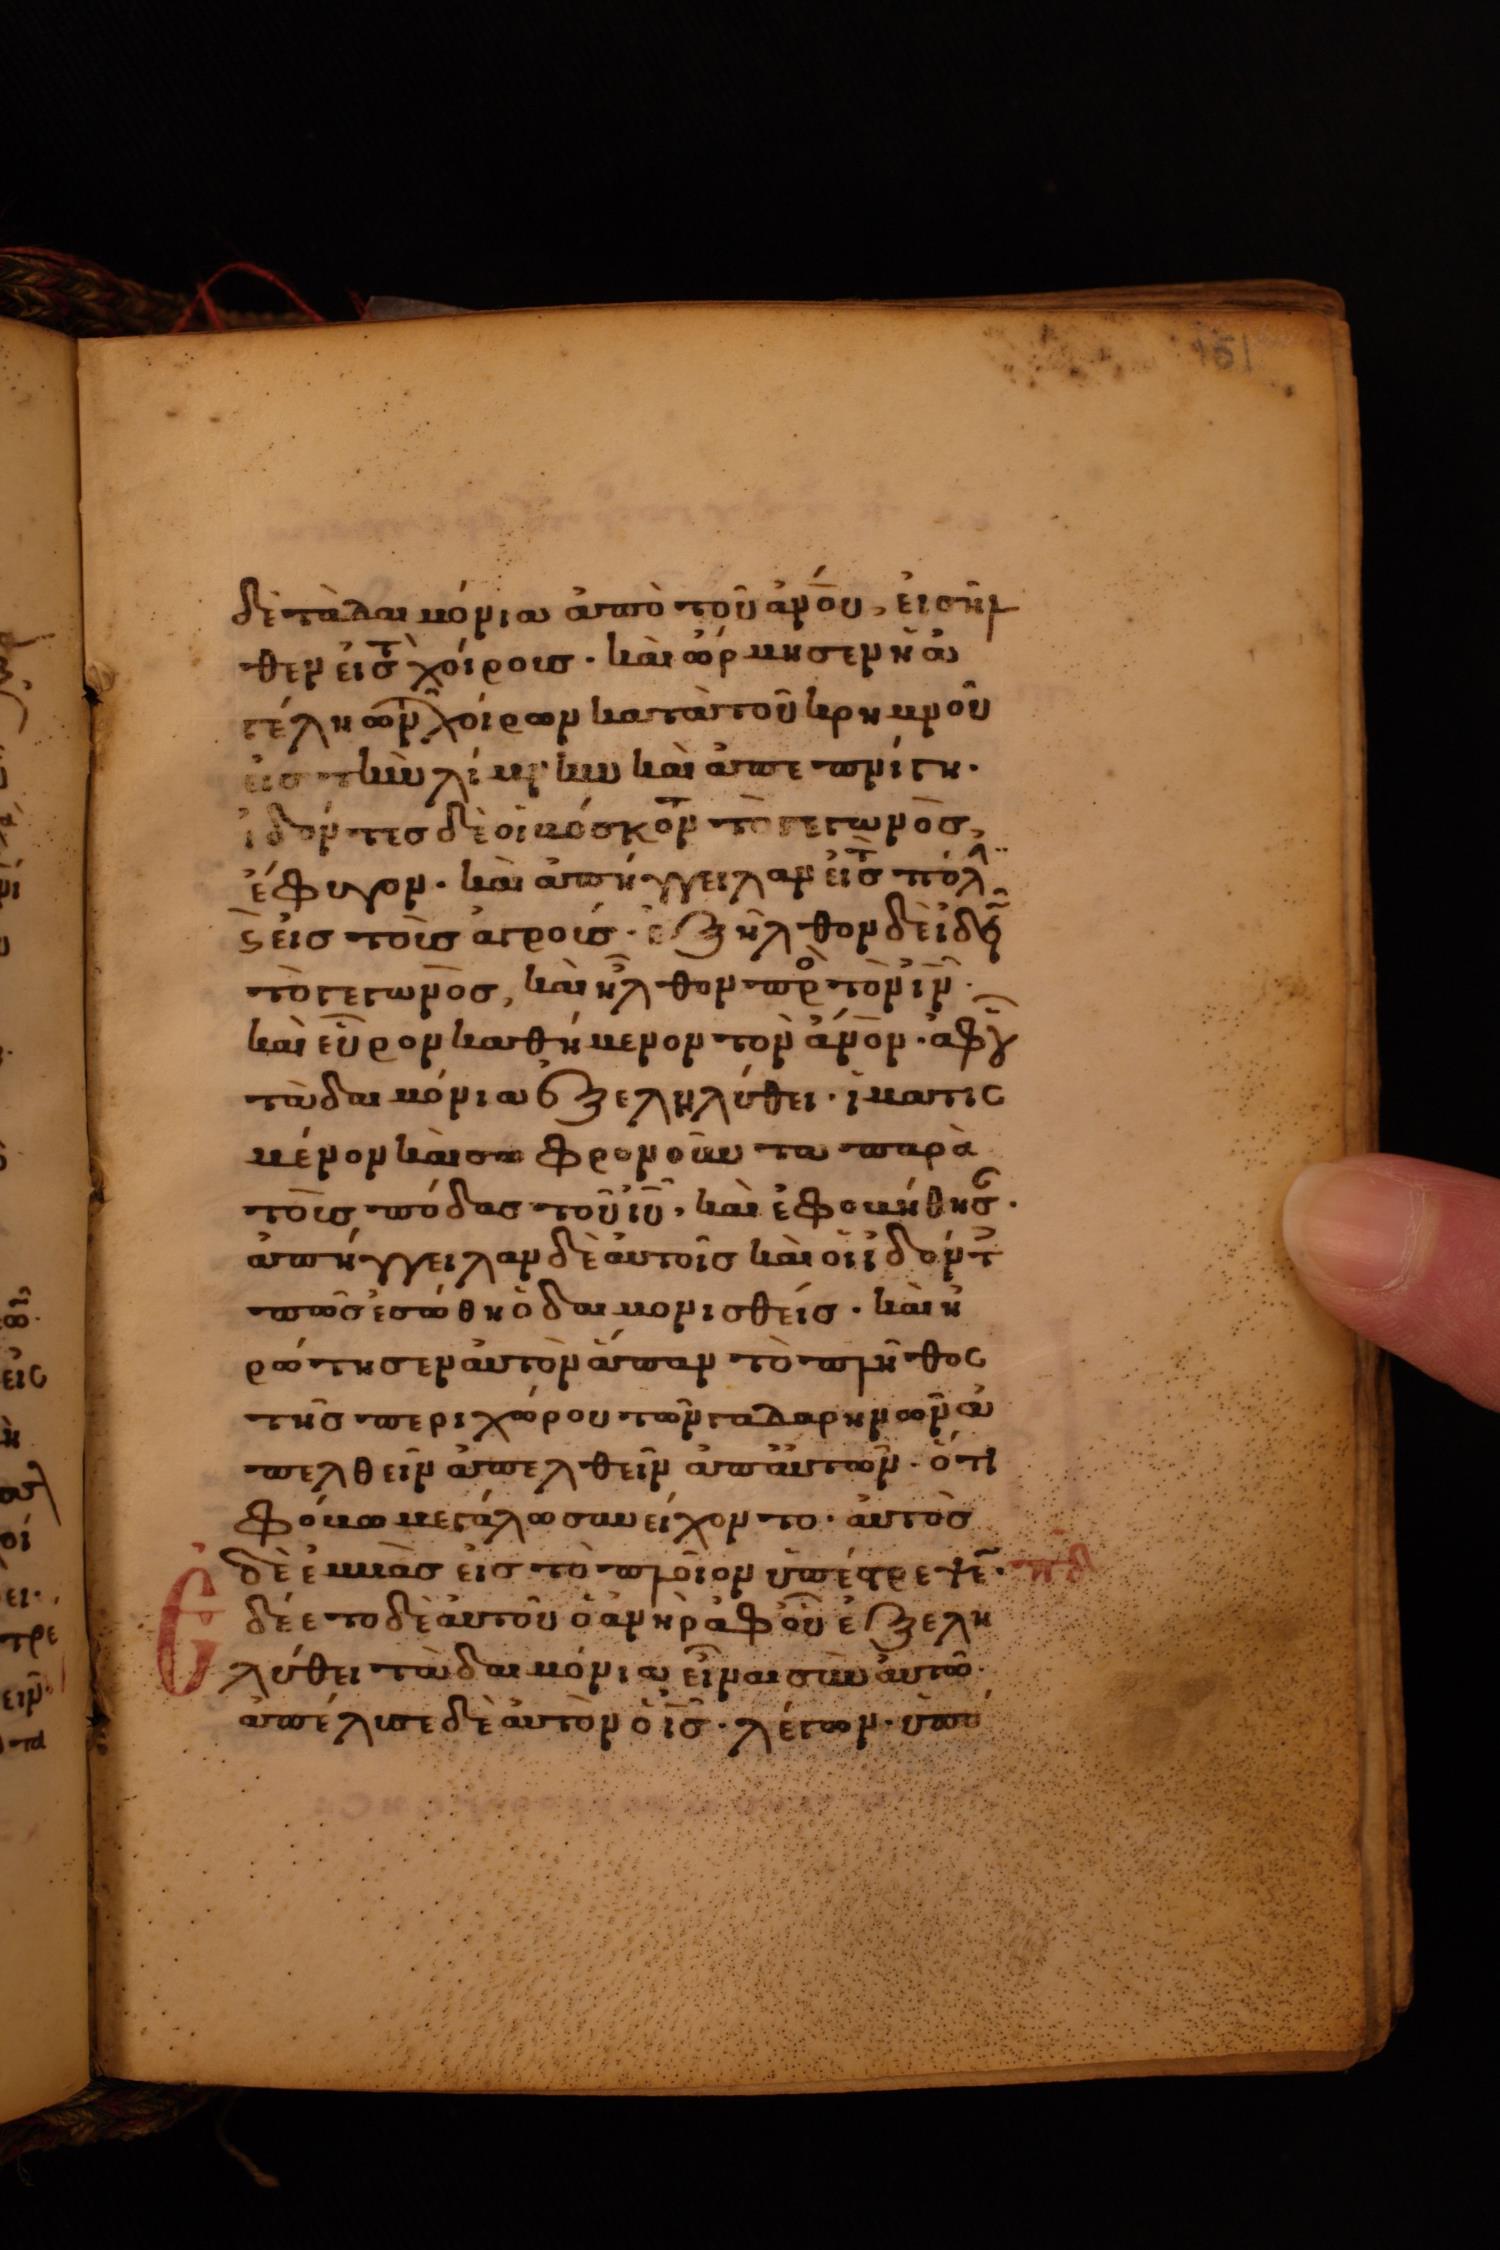 151
δὲ τὰ δαιμόνια ἀπὸ τοῦ ἀν̅ου, εἰσῆλ
θεν εἰς τ̀ χοίρους · καὶ ὥρμησεν ἡ ἀ
γέλη τῶν χοίρων κατὰ τοῦ κρημνοῦ
εἰς τὴν λίμνην καὶ ἀπεπνίγη ·
ἰδόντες δὲ οἱ βόσκοντ τὸ γεγονὸς,
ἔφυγον · καὶ ἀπήγγειλαν εἰς τ̀ πόλ
ϛ̀ εἰς τοὺς ἀγρούς · ἐξῆλθον δὲ ἰδεῖν
τὸ γεγονὸς, καὶ ἦλθον πρ̀ο τὸν ι̅ν̅ ·
καὶ εὗρον καθήμενον τὸν ἀν̅ον · ἀφ' οὗ
τὰ δαιμόνια ἐξεληλύθει · ἱματισ
μένον καὶ σωφρονοῦντα παρὰ
τοὺς πόδας τοῦ ι̅υ̅, καὶ ἐφοβήθησ ·
ἀπήγγειλαν δὲ αὐτοῖς καὶ οἱ ἰδόντ
πῶς ἐσώθη ὁ δαιμονισθείς · καὶ ἠ
ρώτησεν αὐτὸν ἅπαν τὸ πλῆθος
τῆς περιχώρου τῶν γαδαρηνῶν ἀ
πελθεῖν ἀπελθεῖν ἀπ' αὐτῶν · ὅτι
φόβω μεγάλω συνείχοντο · αὐτὸς
δὲ ἐμβὰς εἰς τὸ πλοῖον ὑπέστρεψε ·
Ἐδέετο δὲ αὐτοῦ ὁ ἀνὴρ ἀφ' οὗ ἐξελη
λύθει τὰ δαιμόνια εἶναι σὺν αὐτῶ ·
ἀπέλυσε δὲ αὐτὸν ὁ ι̅ς̅ · λέγων · ὑπό